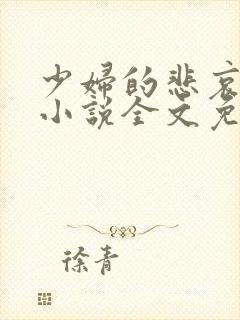 少婦的悲哀
小說全文免
徐青